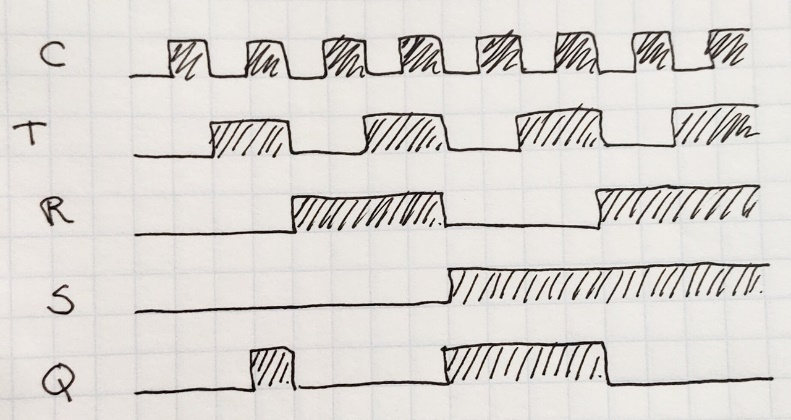 C
T
R
S
Q